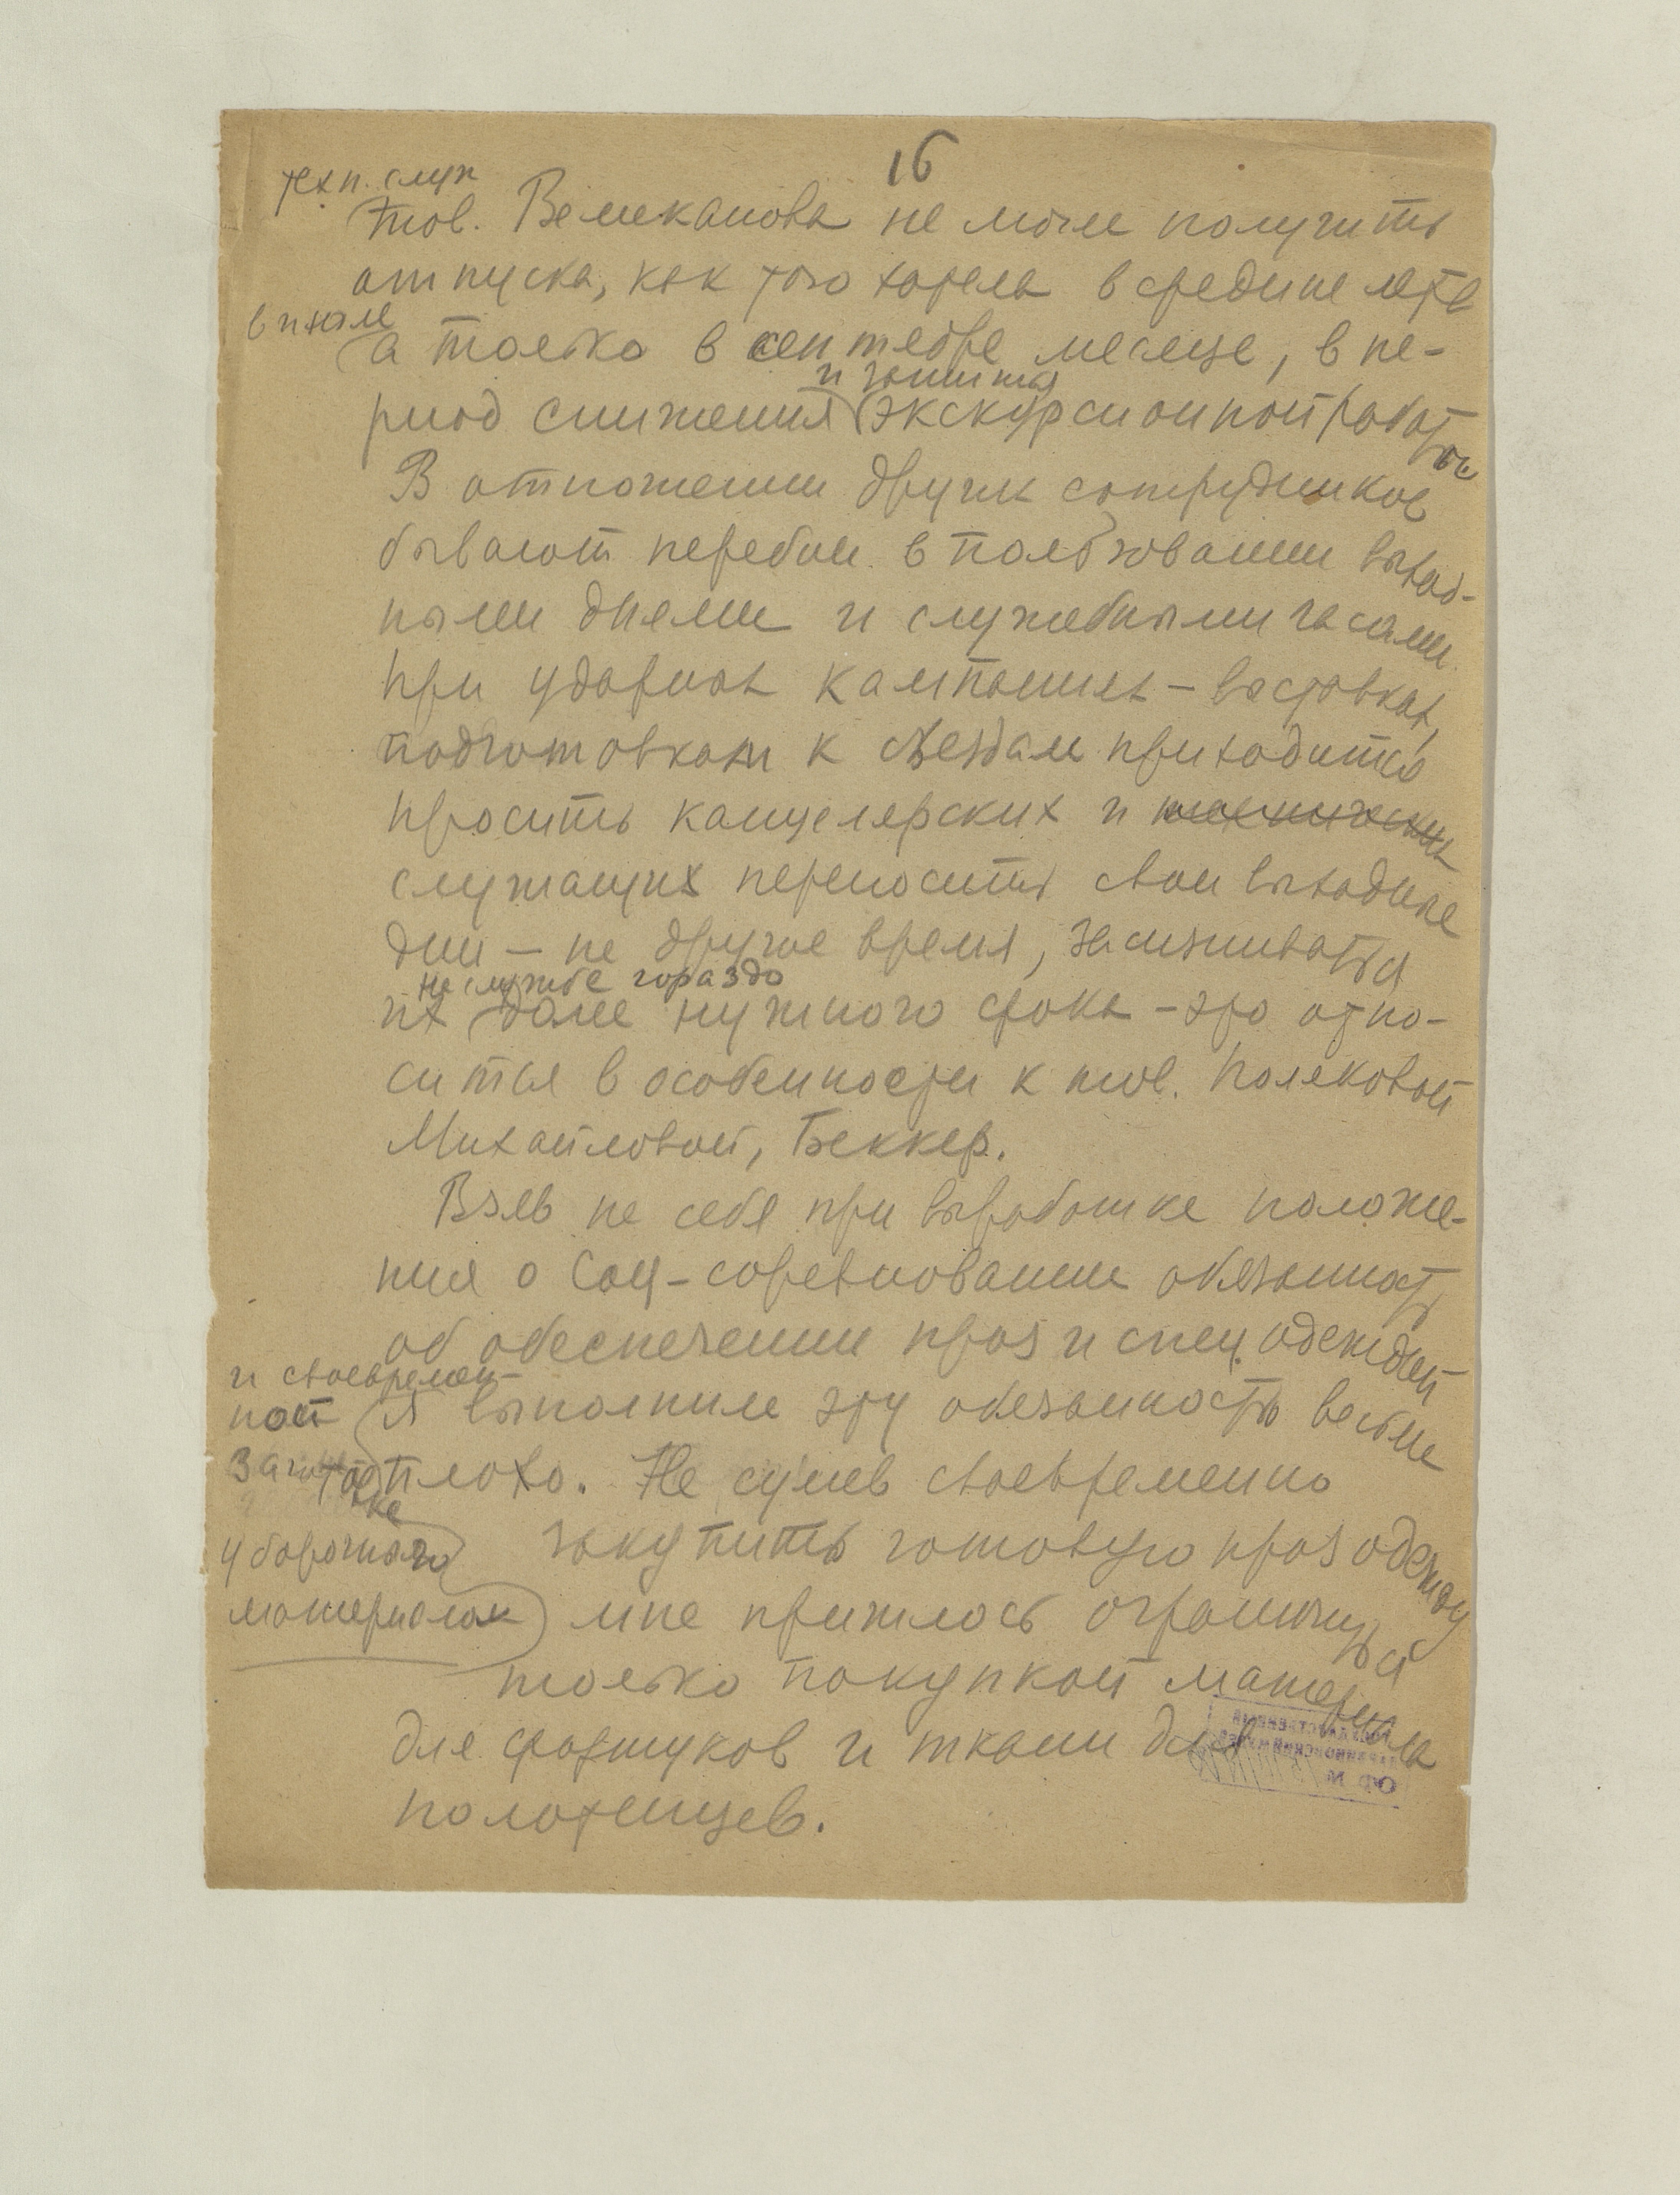 16
техн. служ
тов. Великанова не могла получить
отпуска, как того хотела в средине лета
в июле
а только в сентябре месяце, в пе-
и занятия
риод снижения экскурсионной работы
В отношении других сотрудников
бывают перебои в пользовании выход-
ными днями и служебными часами
при ударных кампаниях – выставках,
подготовках к съездам приходится
просить канцелярских и технических
служащих переносить свои выходные
дни – на другое время, засиживаться
на службе гораздо
их далее нужного срока – это отно-
сится в особенности к тов. Поляковой
Михайловой, Беккер.
Взяв на себя при выработке положе-
ния о Соц-соревновании обязанность
об обеспечении проз и спец. одеждой
и своевремен-
ной
заготов
ке
уборочного
материала
я выполнила эту обязанность весьма
плохо. Не сумев своевременно
закупить готовую проз одежду
мне пришлось ограничиться
только покупкой материала
для фартуков и ткани для
полотенцев.
ОФ №